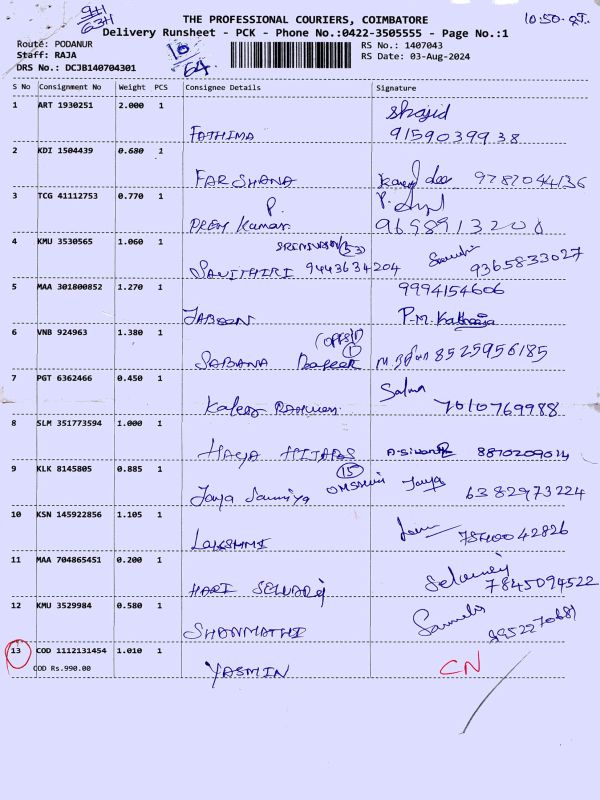 10.50
THE PROFESSIONAL COURIERS, COIMBATORE
Delivery Runsheet - PCK - Phone No.:0422-3505555 - Page No.:1
Route: PODANUR
Staff: RAJA
DRS No.: DCJB140704301
10/64
RS No.: 1407043
RS Date: 03-Aug-2024
S No Consignment No Weight PCS Consignee Details Signature
1 ART 1930251 2.000 1 FATHIMA Shajid 9159039938
2 KDI 1504439 0.680 1 FARSHANA 9787044136
3 TCG 41112753 0.770 1 P. PREM Kumar P. 9698913200
4 KMU 3530565 1.060 1 SAVITHIRI 9443634204 53 9365833027
5 MAA 301800852 1.270 1 JABEEN 9994154606 P.M.
6 VNB 924963 1.380 1 SABANA 1 8525956185
7 PGT 6362466 0.450 1 RAHMAN Salma 7010769988
8 SLM 351773594 1.000 1 HAYA HIJABS 8870209014
9 KLK 8145805 0.885 1 Jaya 15 Jaya 6382973224
10 KSN 145922856 1.105 1 LAKSHMI 7540042826
11 MAA 704865451 0.200 1 HARI SELVARJ 7845094522
12 KMU 3529984 0.580 1 SHANMATHI 9952270681
13 COD 1112131454 1.010 1 YASMIN CN
COD Rs.990.00